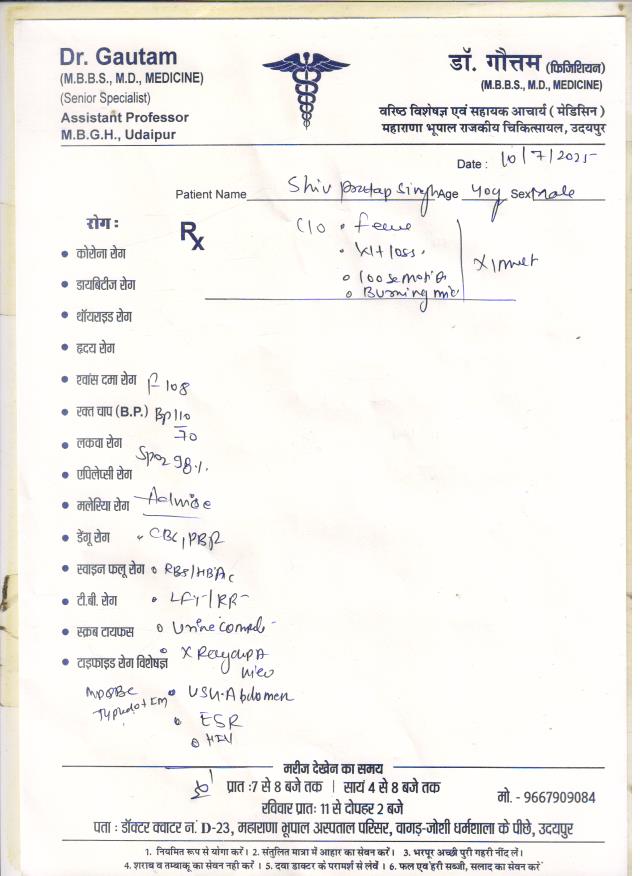 Dr. Gautam
(M.B.B.S., M.D., MEDICINE)
(Senior Specialist)
Assistant Professor
M.B.G.H., Udaipur
डॉ. गौत्तम (फिजिशियन)
(M.B.B.S., M.D., MEDICINE)
वरिष्ठ विशेषज्ञ एवं सहायक आचार्य ( मेडिसिन )
महाराणा भूपाल राजकीय चिकित्सायल, उदयपुर
Date : 10/7/2025
Patient Name Shiv pratap Singh Age 40y Sex Male
रोग :
Rx
C/O • fever
• wt loss.
• loose motion
• Burning mic
X 1 
• कोरोना रोग
• डायबिटीज रोग
• थॉयराइड रोग
• हृदय रोग
• श्वांस दमा रोग
P-108
• रक्त चाप (B.P.) Bp 110
70
• लकवा रोग
Spo2 98%
• एपिलेप्सी रोग
• मलेरिया रोग Advise
• डेंगू रोग • CBC, PBF
• स्वाइन फ्लू रोग • RBS/HBAc
• टी.बी. रोग • LFT/RFT
• स्क्रब टायफस • Urine
• टाइफाइड रोग विशेषज्ञ • X Ray PA
view
Typhidot IGM
• USG-Abdomen
• ESR
• HIV
मरीज देखेन का समय
प्रात :7 से 8 बजे तक | सायं 4 से 8 बजे तक
रविवार प्रातः 11 से दोपहर 2 बजे
मो. - 9667909084
पता : डॉक्टर क्वाटर नं. D-23, महाराणा भूपाल अस्पताल परिसर, वागड़-जोशी धर्मशाला के पीछे, उदयपुर
1. नियमित रूप से योगा करें। 2. संतुलित मात्रा में आहार का सेवन करें। 3. भरपूर अच्छी पुरी गहरी नींद लें।
4. शराब व तम्बाकू का सेवन नही करें । 5. दवा डाक्टर के परामर्श से लेवें । 6. फल एवं हरी सब्जी, सलाद का सेवन करें